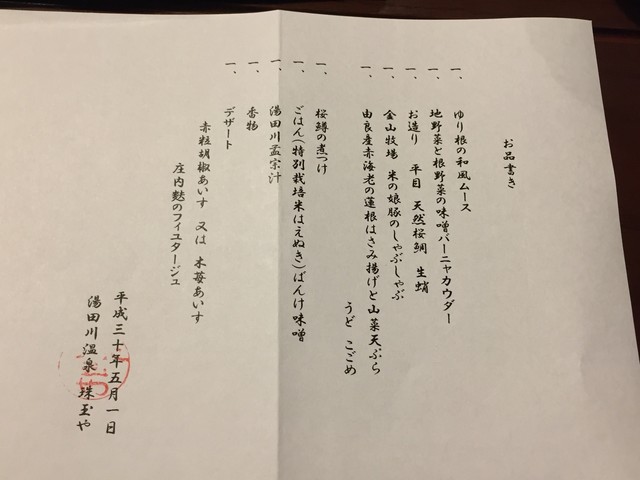 お品書き
一、ゆり根の和風ムース
一、地野菜と根野菜の味噌バーニャカウダー
一、お造り 平目 天然桜鯛 生蛸
一、金山牧場 米の娘豚のしゃぶしゃぶ
一、由良産赤海老の蓮根はさみ揚げと山菜天ぷら
うど こごめ
一、桜鱒の煮つけ
一、ごはん(特別栽培米はえぬき)ばんけ味噌
一、湯田川孟宗汁
一、香物
一、デザート
赤粒胡椒あいす 又は 木苺あいす
庄内麩のフィユタージュ
平成三十年五月一日
湯田川温泉 珠玉や